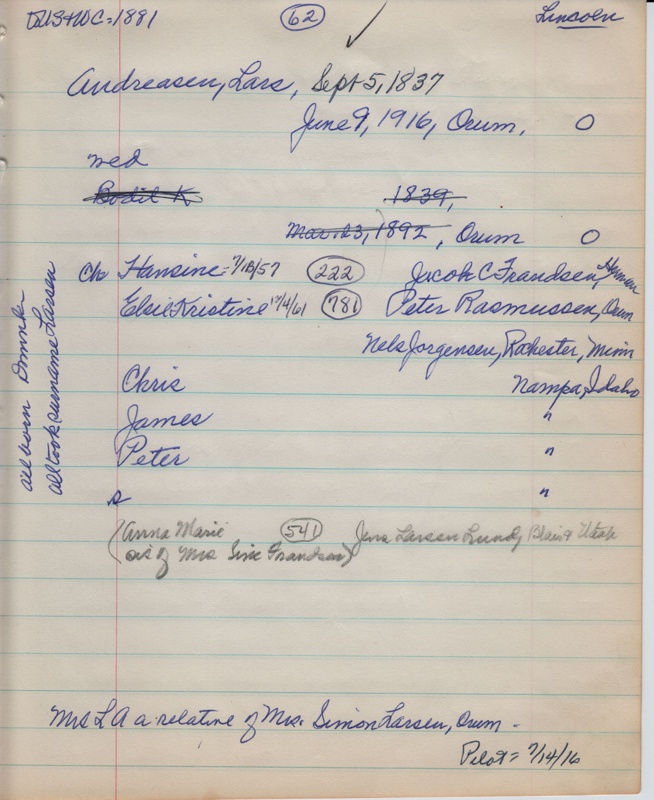 DUS&WC=1881 62 Lincoln
Andreasen, Lars, Sept 5, 1837
June 9, 1916, Orum, O
med
Bodil K 1839,
Mar. 23, 1892, Orum O
Ch Hansine = 7/18/57 222 Jacob C Frandsen, Herman
Elsie Kristine 12/4/61 781 Peter Rasmussen, Orum
Nels Jorgensen, Rochester, Minn
Chris Nampa, Idaho
James "
Peter "
s "
(Anna Marie 541 Jens Larsen Lund, Blair & Utah
sis of Mrs Sine Frandsen)
all born Denmark
all took surname Larsen
Mrs L A a relative of Mrs. Simon Larsen, Orum -
Pilot = 7/14/16